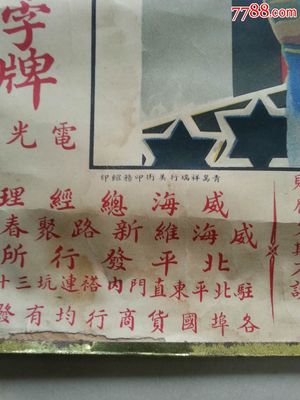 7788.com
字牌
電光
青島祥瑞行美術印務館印
威海總經理
威海維新路聚春
北平發行所
駐北平東直門內褡連坑三十
各埠國貨商行均有發